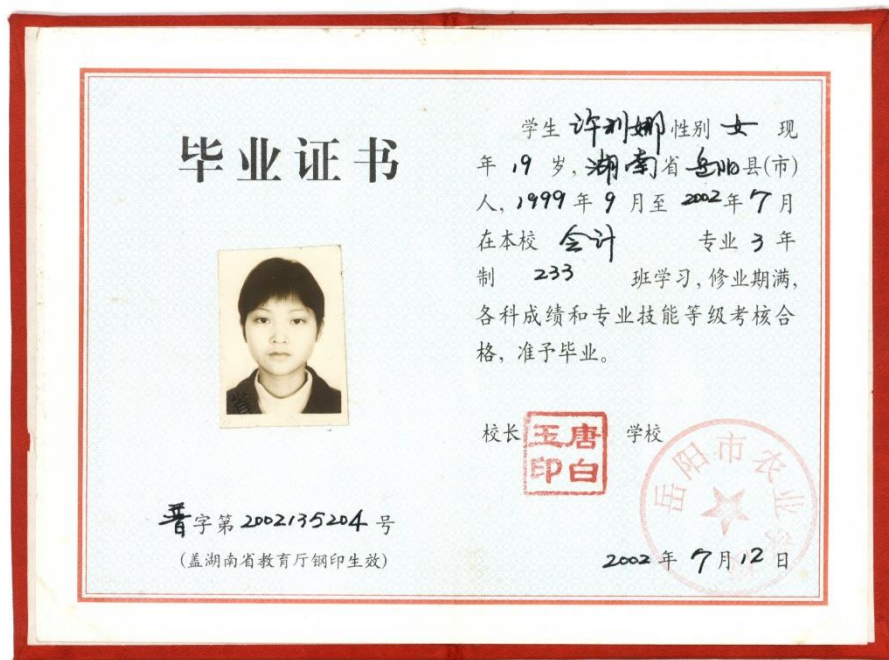 毕业证书
普字第2002135204号
(盖湖南省教育厅钢印生效)
学生 许利娜 性别 女 现
年 19 岁,湖南省岳阳县(市)
人,1999年9月至2002年7月
在本校 会计 专业3年
制 233 班学习,修业期满,
各科成绩和专业技能等级考核合
格,准予毕业。
校长 唐白玉印 学校
岳阳市农业学校
2002年7月12日